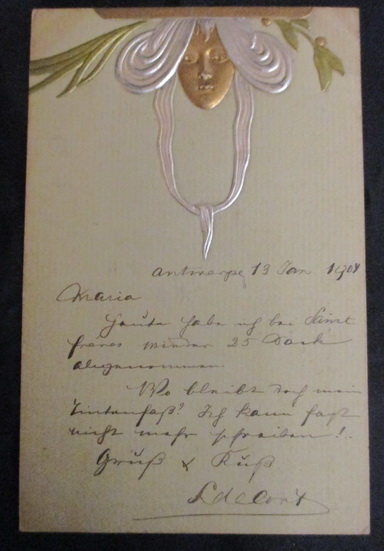 Antwerpen 13 Jan 1908
Maria
Heute habe ich bei
wieder 25 Pack
abgenommen.
Wo bleibt doch mein
Tintenfaß? Ich kann fast
nicht mehr schreiben!
Gruß & Kuß